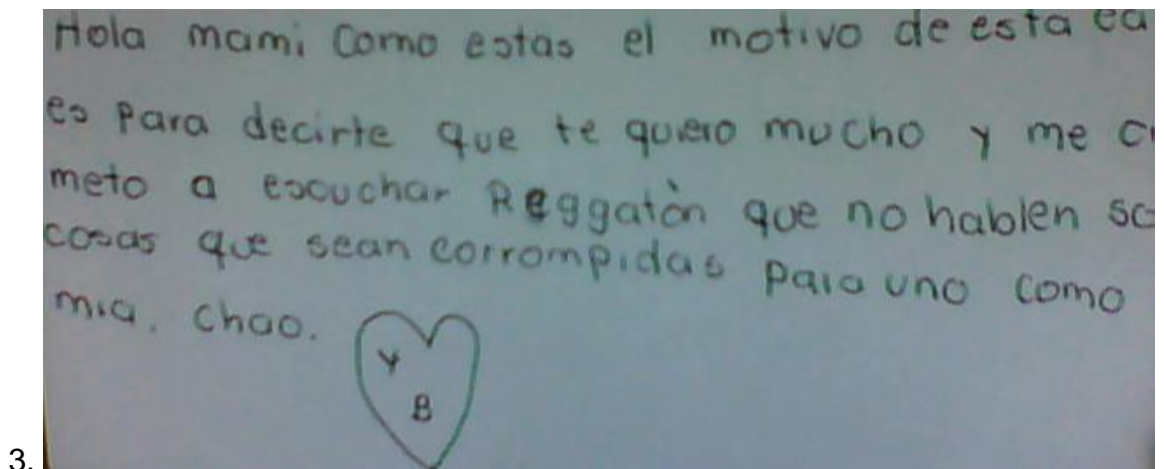 Hola mami como estas el motivo de esta ca
es Para decirte que te quiero mucho y me c
meto a escuchar Reggatòn que no hablen so
cosas que sean corrompidas para uno como
mia. chao.
Y
B
3.